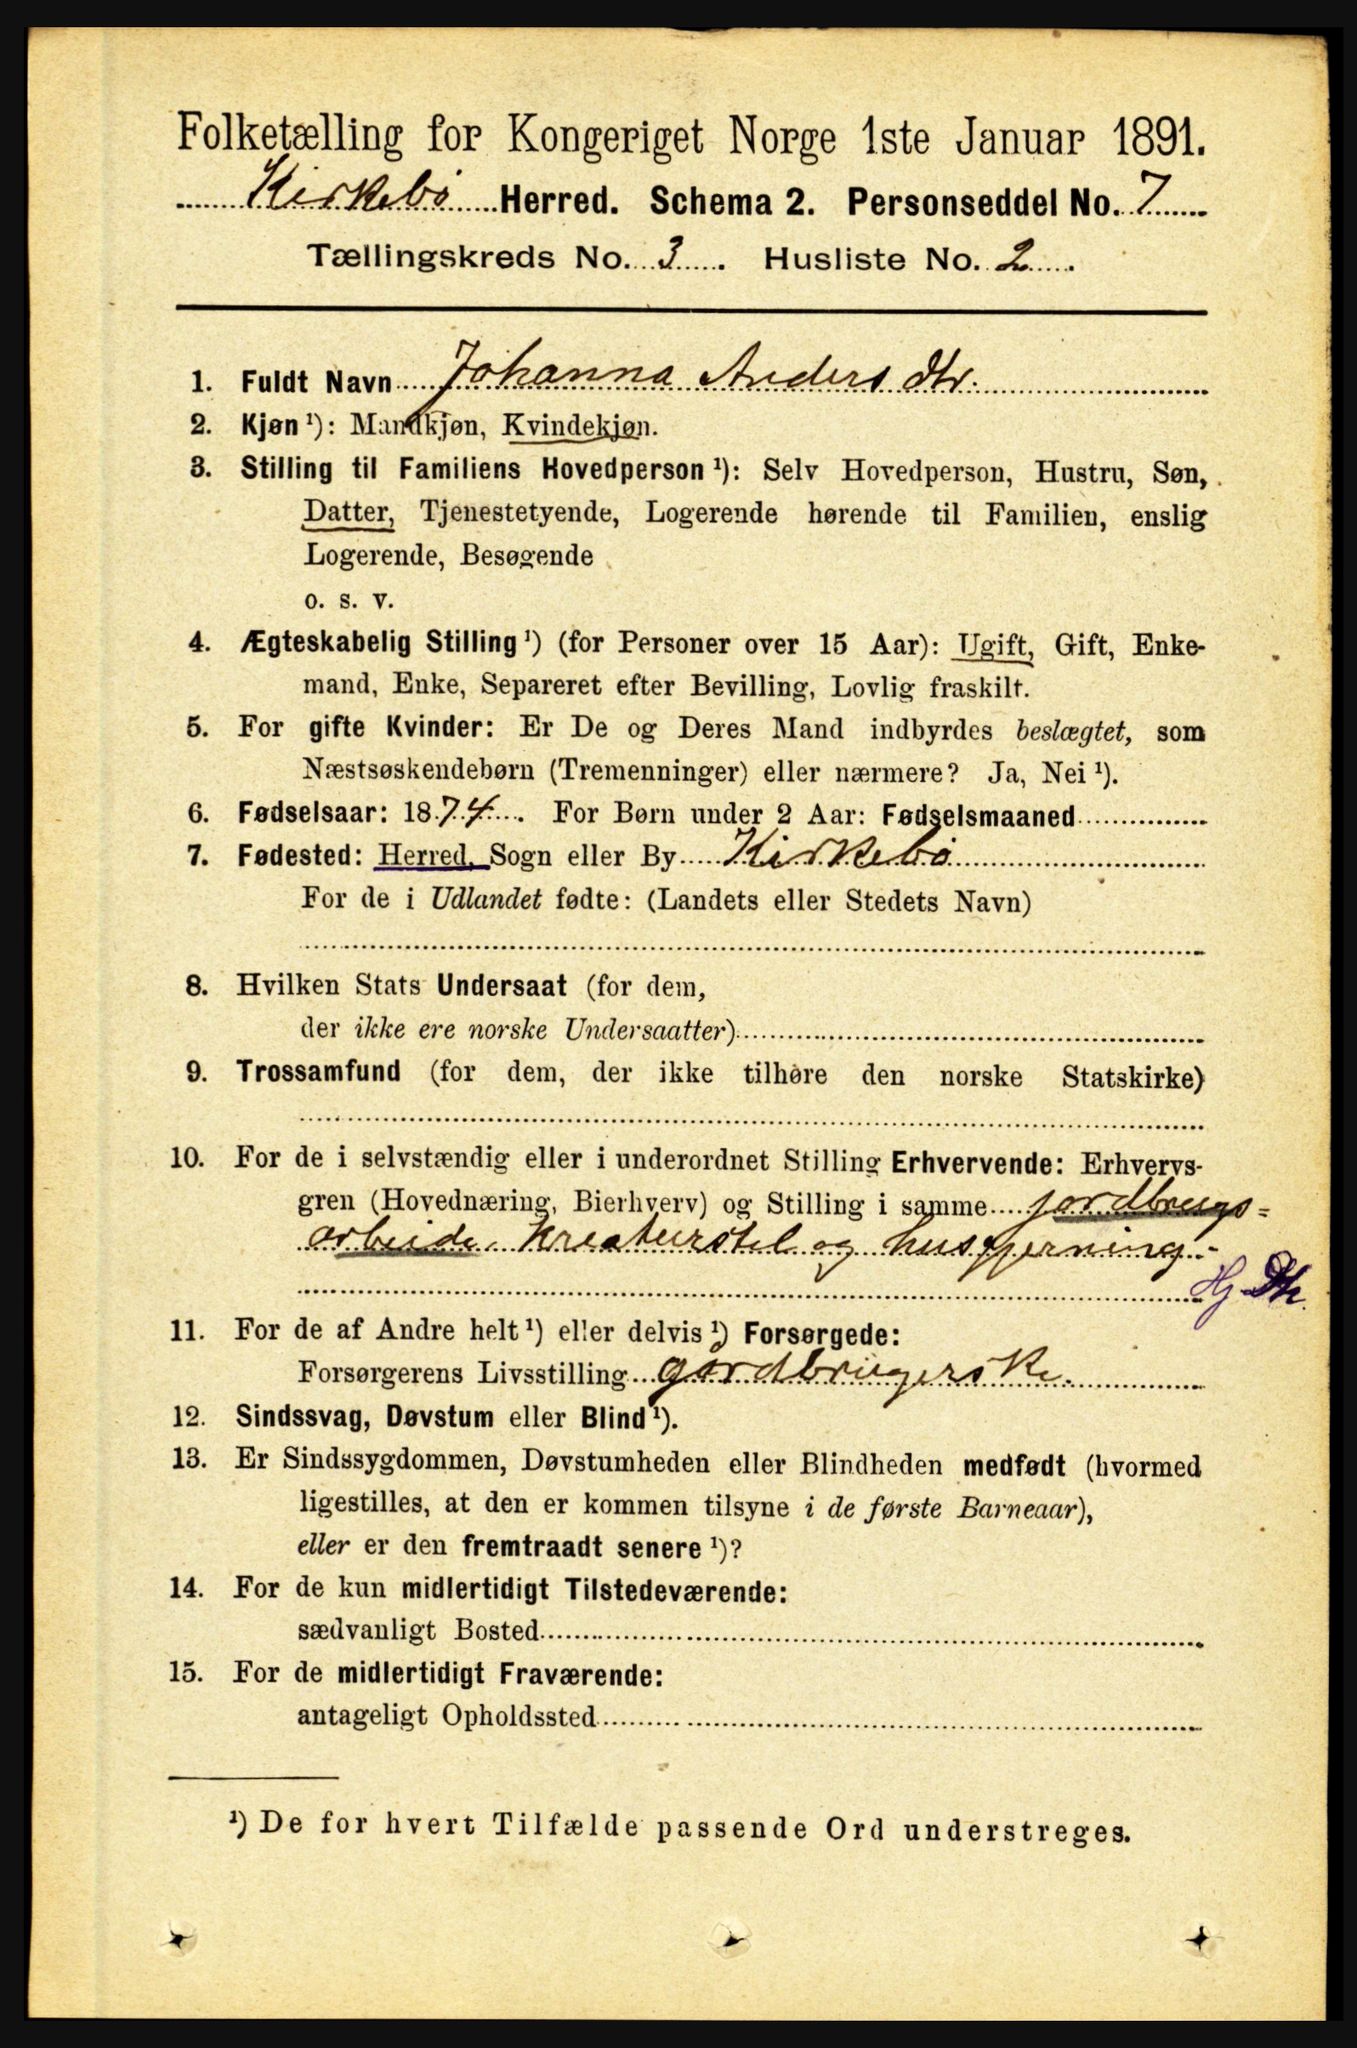 Folketælling for Kongeriget Norge 1ste Januar 1891.
Kirkebø Herred. Schema 2. Personseddel No. 7
Tællingskreds No. 3. Husliste No. 2.
1. Fuldt Navn Johanna Anders dtr.
2. Kjøn ¹): Mandkjøn, Kvindekjøn.
3. Stilling til Familiens Hovedperson ¹): Selv Hovedperson, Hustru, Søn,
Datter, Tjenestetyende, Logerende hørende til Familien, enslig
Logerende, Besøgende
o. s. v.
4. Ægteskabelig Stilling ¹) (for Personer over 15 Aar): Ugift, Gift, Enke-
mand, Enke, Separeret efter Bevilling, Lovlig fraskilt.
5. For gifte Kvinder: Er De og Deres Mand indbyrdes beslægtet, som
Næstsøskendebørn (Tremenninger) eller nærmere? Ja, Nei ¹).
6. Fødselsaar: 1874. For Børn under 2 Aar: Fødselsmaaned
7. Fødested: Herred, Sogn eller By Kirkebø
For de i Udlandet fødte: (Landets eller Stedets Navn)
8. Hvilken Stats Undersaat (for dem,
der ikke ere norske Undersaatter)
9. Trossamfund (for dem, der ikke tilhøre den norske Statskirke)
10. For de i selvstændig eller i underordnet Stilling Erhvervende: Erhvervs-
gren (Hovednæring, Bierhverv) og Stilling i samme jordbrugs=
arbeide, Kreaturstel og husgjerning.
Hj Dtr.
11. For de af Andre helt ¹) eller delvis ¹) Forsørgede:
Forsørgerens Livsstilling gårdbrugerske.
12. Sindssvag, Døvstum eller Blind ¹).
13. Er Sindssygdommen, Døvstumheden eller Blindheden medfødt (hvormed
ligestilles, at den er kommen tilsyne i de første Barneaar),
eller er den fremtraadt senere ¹)?
14. For de kun midlertidigt Tilstedeværende:
sædvanligt Bosted
15. For de midlertidigt Fraværende:
antageligt Opholdssted
¹) De for hvert Tilfælde passende Ord understreges.